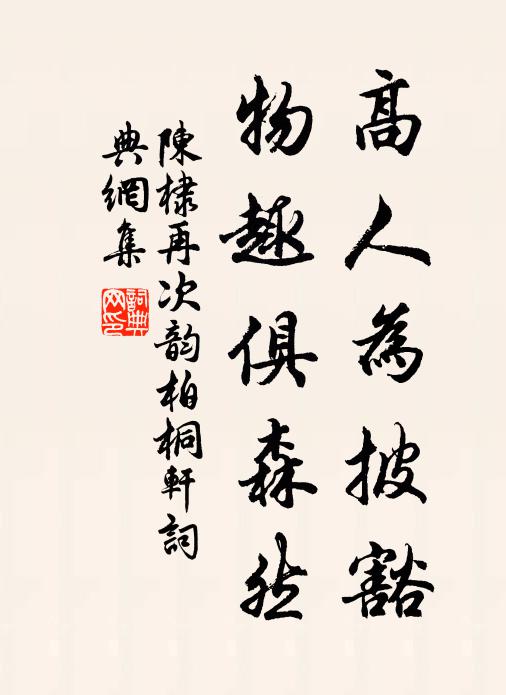 高人為披豁
物趣俱森然
陳棣再次韵柏桐軒詞
典網集
詞典网印